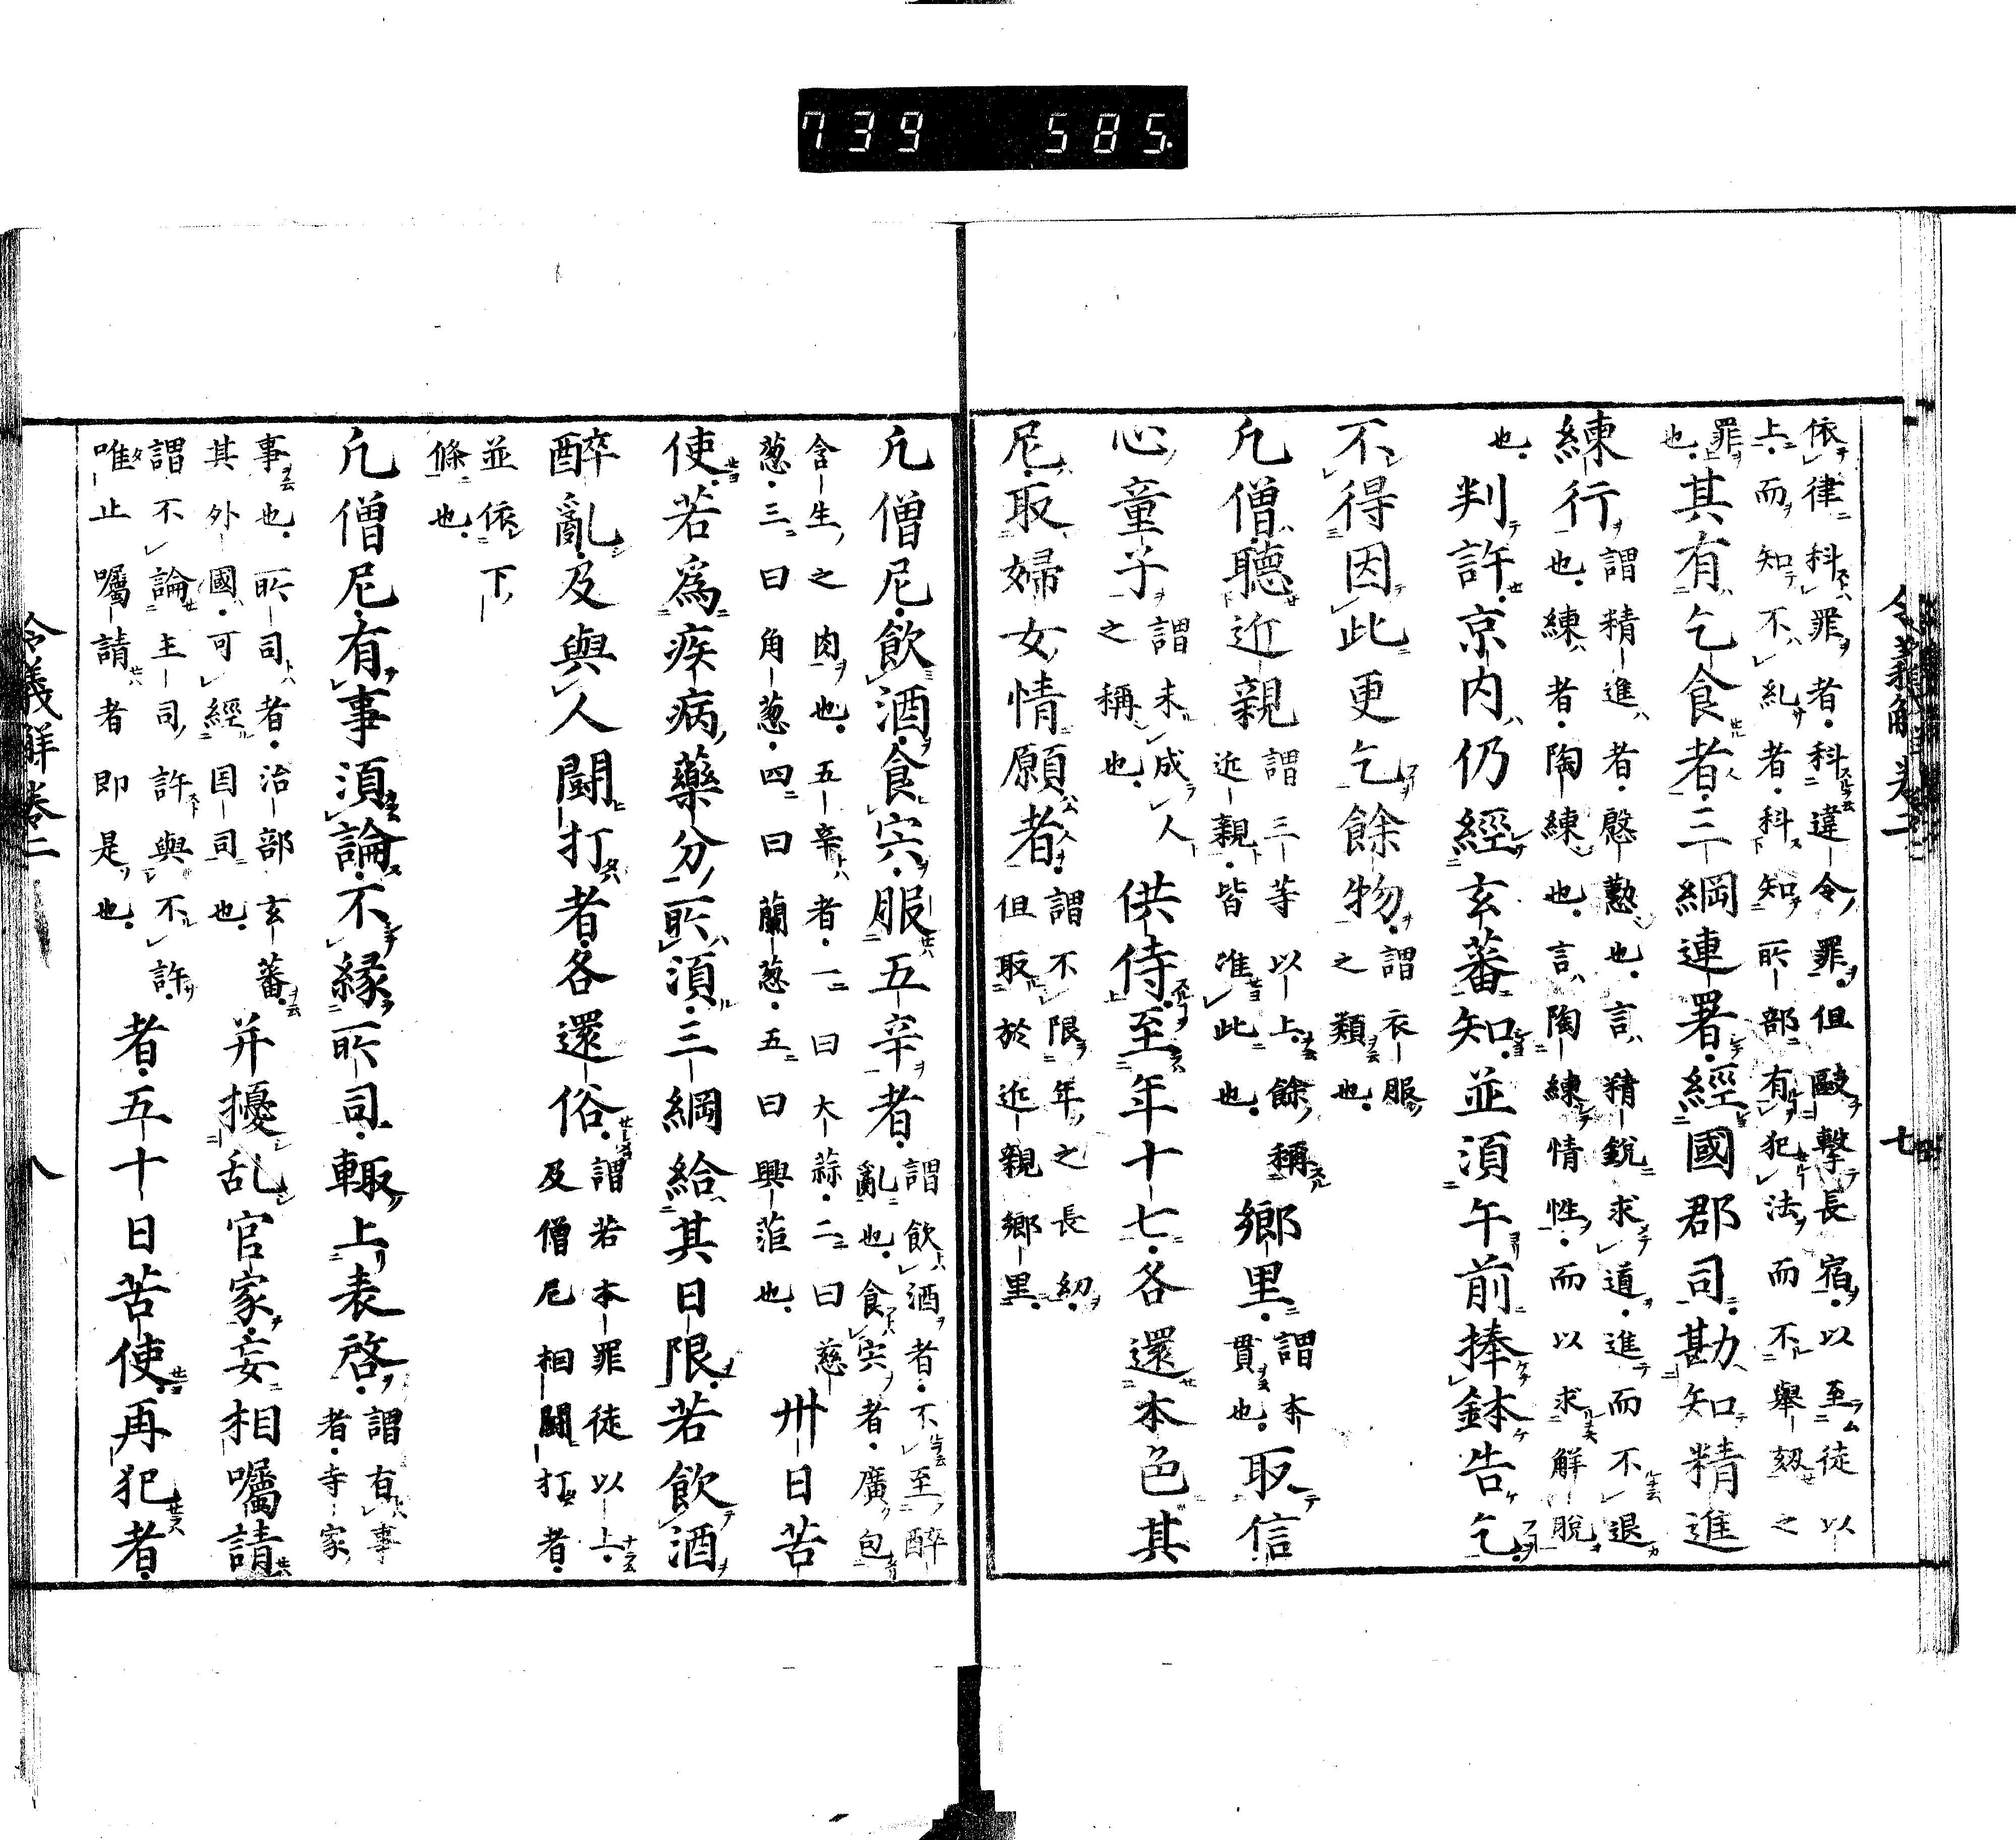 739 585.
令義解卷二 七
依律科罪者科違令罪但毆撃長宿以至徒以
上而知不糺者科知所部有犯法而不舉劾之
罪也其有乞食者三綱連署經國郡司勘知精進
練行謂精進者慇懃也言精鋭求道進而不退
也練者陶練也言陶練情性而以求解脱
也判許京内仍經玄蕃知並須午前捧鉢告乞
不得因此更乞餘物謂衣服之類也
凡僧聽近親謂三等以上餘稱近親皆准此也郷里謂本貫也取信
心童子謂未成人之稱也供侍至年十七各還本色其
尼取婦女情願者謂不限年之長幼但取於近親郷里
凡僧尼飲酒食宍服五辛者謂飲酒者不至醉亂也食宍者廣包
含生之肉也五辛者一曰大蒜二曰慈
葱三曰角葱四曰蘭葱五曰興蕖也卅日苦
使若爲疾病藥分所須三綱給其日限若飲酒
醉亂及與人闘打者各還俗謂若本罪徒以上及僧尼相闘打者
並依下條也
凡僧尼有事須論不縁所司輙上表啓謂有事者寺家
事也所司者治部玄蕃其外國可經国司也并擾乱官家妄相囑請
謂不論主司許與不許唯止囑請者即是也者五十日苦使再犯者
令義解卷二 八